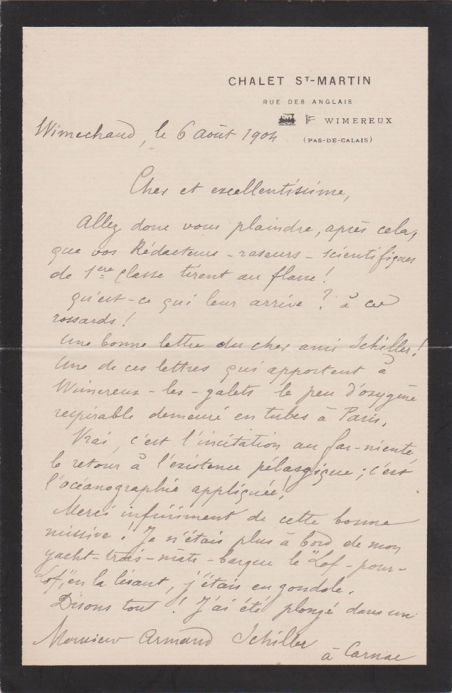 CHALET ST-MARTIN
RUE DES ANGLAIS
WIMEREUX
(PAS-DE-CALAIS)
Wimechaud, le 6 août 1904
Cher et excellentissime,
Allez donc vous plaindre, après cela,
que vos Rédacteurs-raseurs-scientifiques
de 1ère classe tirent au flanc!
qu'est-ce qui leur arrive? à ces
rossards!
Une bonne lettre du cher ami Schiller!
Une de ces lettres qui apportent à
Wimereux-les-galets le peu d'oxygène
respirable demeuré en tubes à Paris.
Vrai, c'est l'incitation au far-niente,
le retour à l'existence pélasgique; c'est
l'océanographie appliquée!
Merci infiniment de cette bonne
missive! Je n'étais plus à bord de mon
yacht-trois-mâts-barque le "Lof-pour-
lof", en la lisant, j'étais en gondole.
Disons tout! J'ai été plongé dans un
Monsieur Armand Schiller
à Carnac